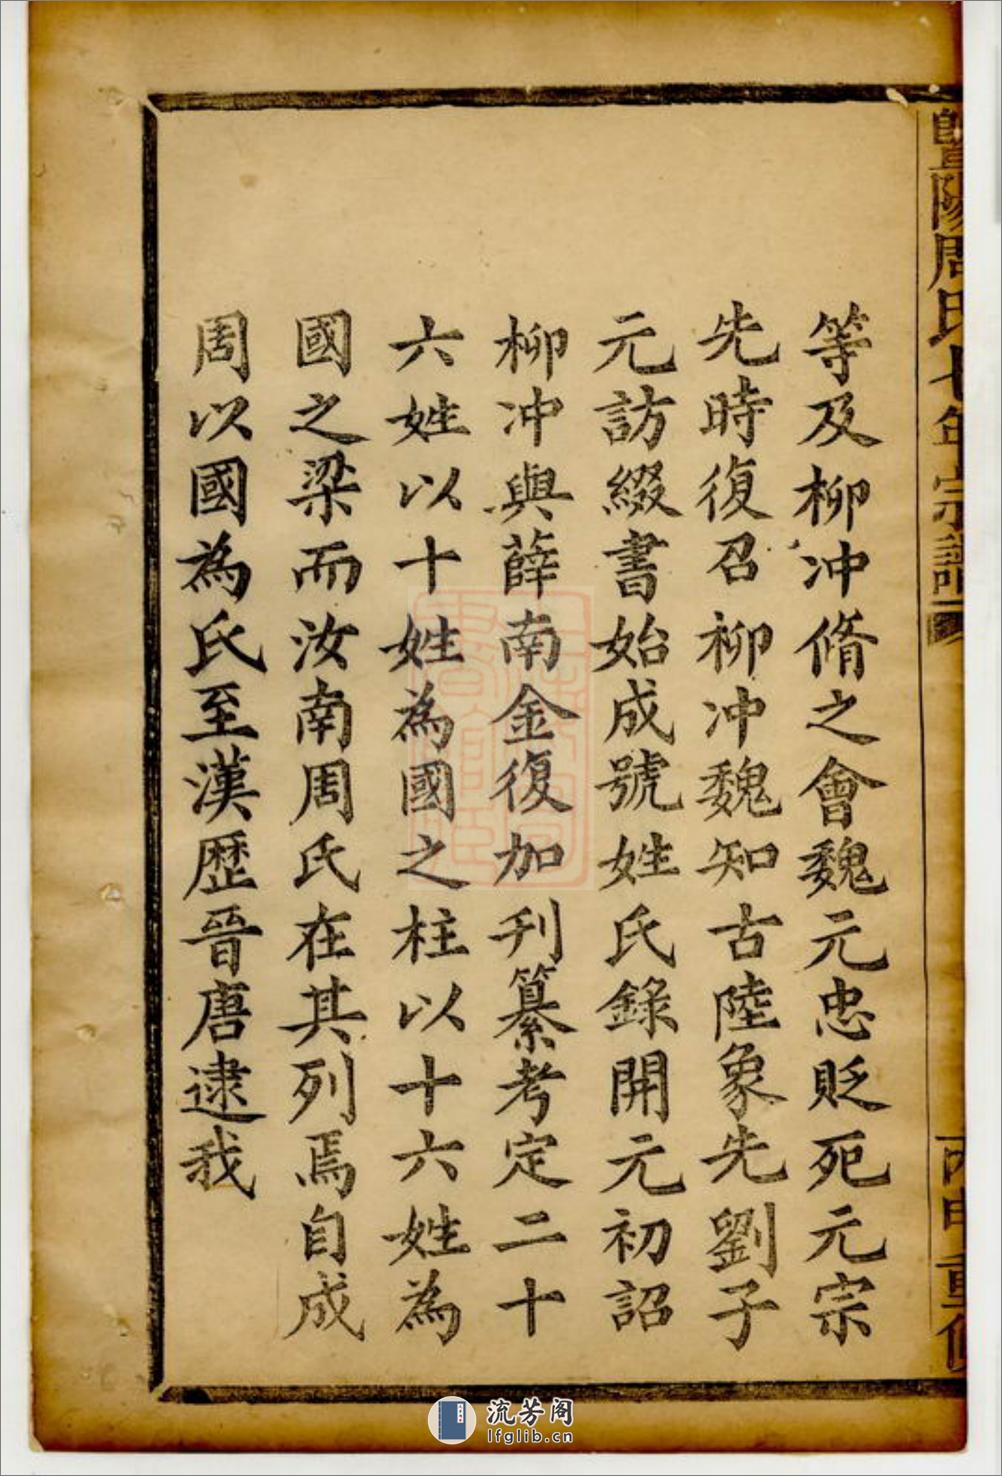 暨陽周氏七年宗譜
丙申重修
等及柳冲脩之會魏元忠貶死元宗
先時復召柳冲魏知古陸象先劉子
元訪綴書始成號姓氏錄開元初詔
柳冲與薛南金復加刋纂考定二十
六姓以十姓為國之柱以十六姓為
國之梁而汝南周氏在其列焉自成
周以國為氏至漢歷晉唐逮我
流芳阁
lfglib.cn